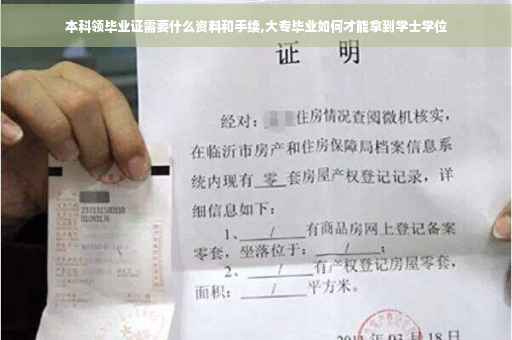 本科领毕业证需要什么资料和手续,大专毕业如何才能拿到学士学位
证 明
经对: 住房情况查阅微机核实,
在临沂市房产和住房保障局档案信息系
统内现有 零 套房屋产权登记记录,详
细信息如下:
1、 / 有商品房网上登记备案
零套,坐落位于: / ;
2、 / 有产权登记房屋零套,
面积: / 平方米。
03月18日